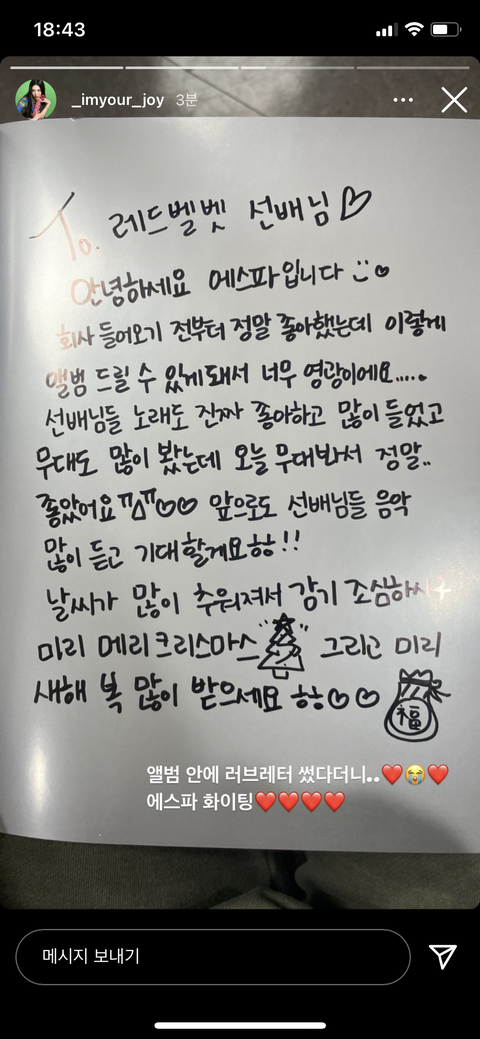 18:43
_imyour_joy 3분
To. 레드벨벳 선배님♡
안녕하세요 에스파입니다 :)♡
회사 들어오기 전부터 정말 좋아했는데 이렇게
앨범 드릴 수 있게돼서 너무 영광이에요.....
선배님들 노래도 진짜 좋아하고 많이 들었고
무대도 많이 봤는데 오늘 무대봐서 정말..
좋았어요ㅠㅿㅠ♡♡ 앞으로도 선배님들 음악
많이 듣고 기대할게요ㅎㅎ!!
날씨가 많이 추워져서 감기 조심하시구
미리 메리크리스마스 그리고 미리
새해 복 많이 받으세요 ㅎㅎ♡♡ 福
앨범 안에 러브레터 썼다더니..❤️😭❤️
에스파 화이팅❤️❤️❤️❤️
메시지 보내기